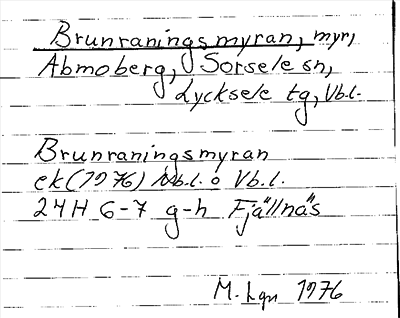 Brunraningsmyran, myr,
Abmoberg, Sorsele sn,
Lycksele tg, Vb.l.
Brunraningsmyran
ek (1976) Nb.l. o Vb.l.
24H 6-7 g-h Fjällnäs
M. Lgn 1976